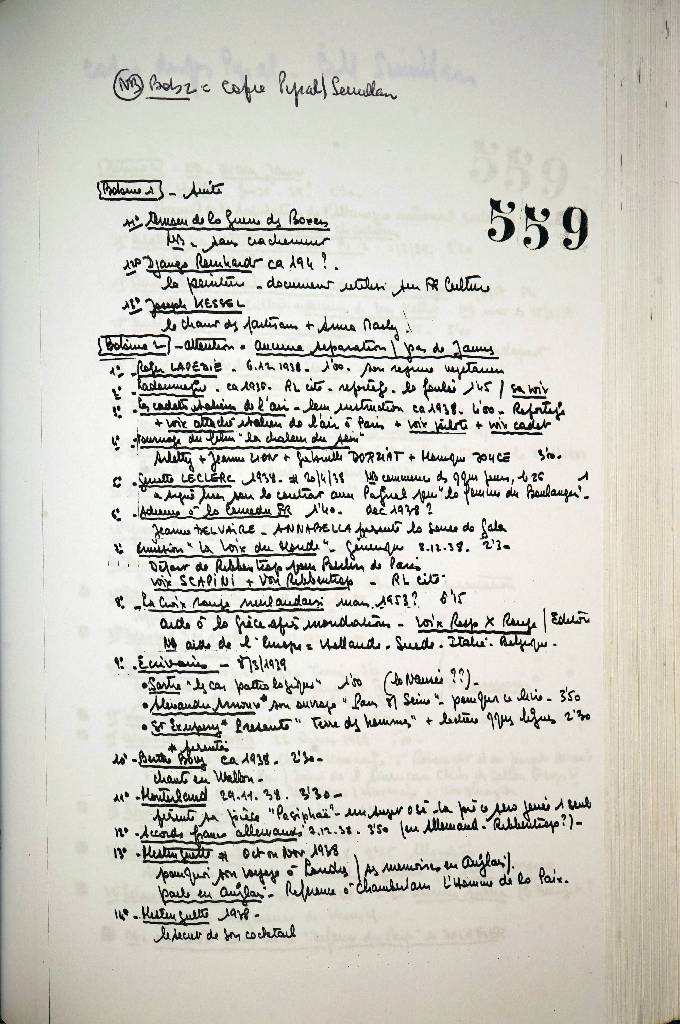 NB Bob 2 = copie
559
Bobine 1 - suite
11° de la Guerre des Boxers
NB - sans
12° Django Reinhardt ca 194 ?.
la peinture - document utilisé sur FR Culture
13° Joseph KESSEL
le chant des partisans + Anna Marly
Bobine 2 - attention = aucune séparation / pas de Jaunes
1° - LAPEDIE - 6.12.1938. 1'00. son régime végétarien
2° - ca 1930. RL cité - reportage. la foulée 1'45 / sa voix
3° - les cadets italiens de l'air - leur instruction ca 1938. 4'00 - Reportage
+ voix attaché italien de l'air à Paris + voix pilote + voix cadet
4° - tournage du film "la chaleur du sein"
Arletty + Jeanne LION + Gabrielle DORZIAT + Monique JOYCE 3'00.
5° - Ginette LECLERC 1938. * 20/4/38 NB commence ds qques jours, 1'25
a signé hier soir le contrat avec Pagnol pour "la femme du Boulanger".
6° - à la Comédie FR 1'40. déc 1938 ?
Jeanne DELVAIRE - ANNABELLA
7° émission "La Voix du Monde" - Générique 8.12.38. 2'30
Départ de Ribbentrop pour Berlin de Paris
voix SCAPINI + Von Ribbentrop - RL cité
8° - la Croix Rouge néerlandaise mars 1953 ? 6'15
aide à la Grèce après inondations - voix Resp X Rouge /
NB aide de l'Europe = Hollande - Suède - Italie - Belgique -
9° - Écrivains - 8/3/1939
• Sartre "le cas pathologique" 1'00 (la Nausée ??) -
• Alexandre Arnoux* son ouvrage "Paris s/ Seine" - pourquoi ce livre - 3'50
• St Exupery* Présente "Terre des hommes" + lecture qques lignes 2'30
* présenté
10° - Berthe Bovy ca 1938 - 2'30 -
chante en Wallon -
11° - Montherland 29.11.38. 3'30 -
présente sa pièce "Pasiphaé" - la pièce sera jouée 1 seule
12° - Accords franco allemands 8.12.38 - 3'50 (en Allemand - Ribbentrop ?) -
13° - Mistinguette * Oct ou Nov 1938
pourquoi son voyage à Londres / ses mémoires en Anglais /.
parle en Anglais - Référence à Chamberlain L'Homme de la Paix.
14° - Mistinguette 1938 -
le secret de son cocktail